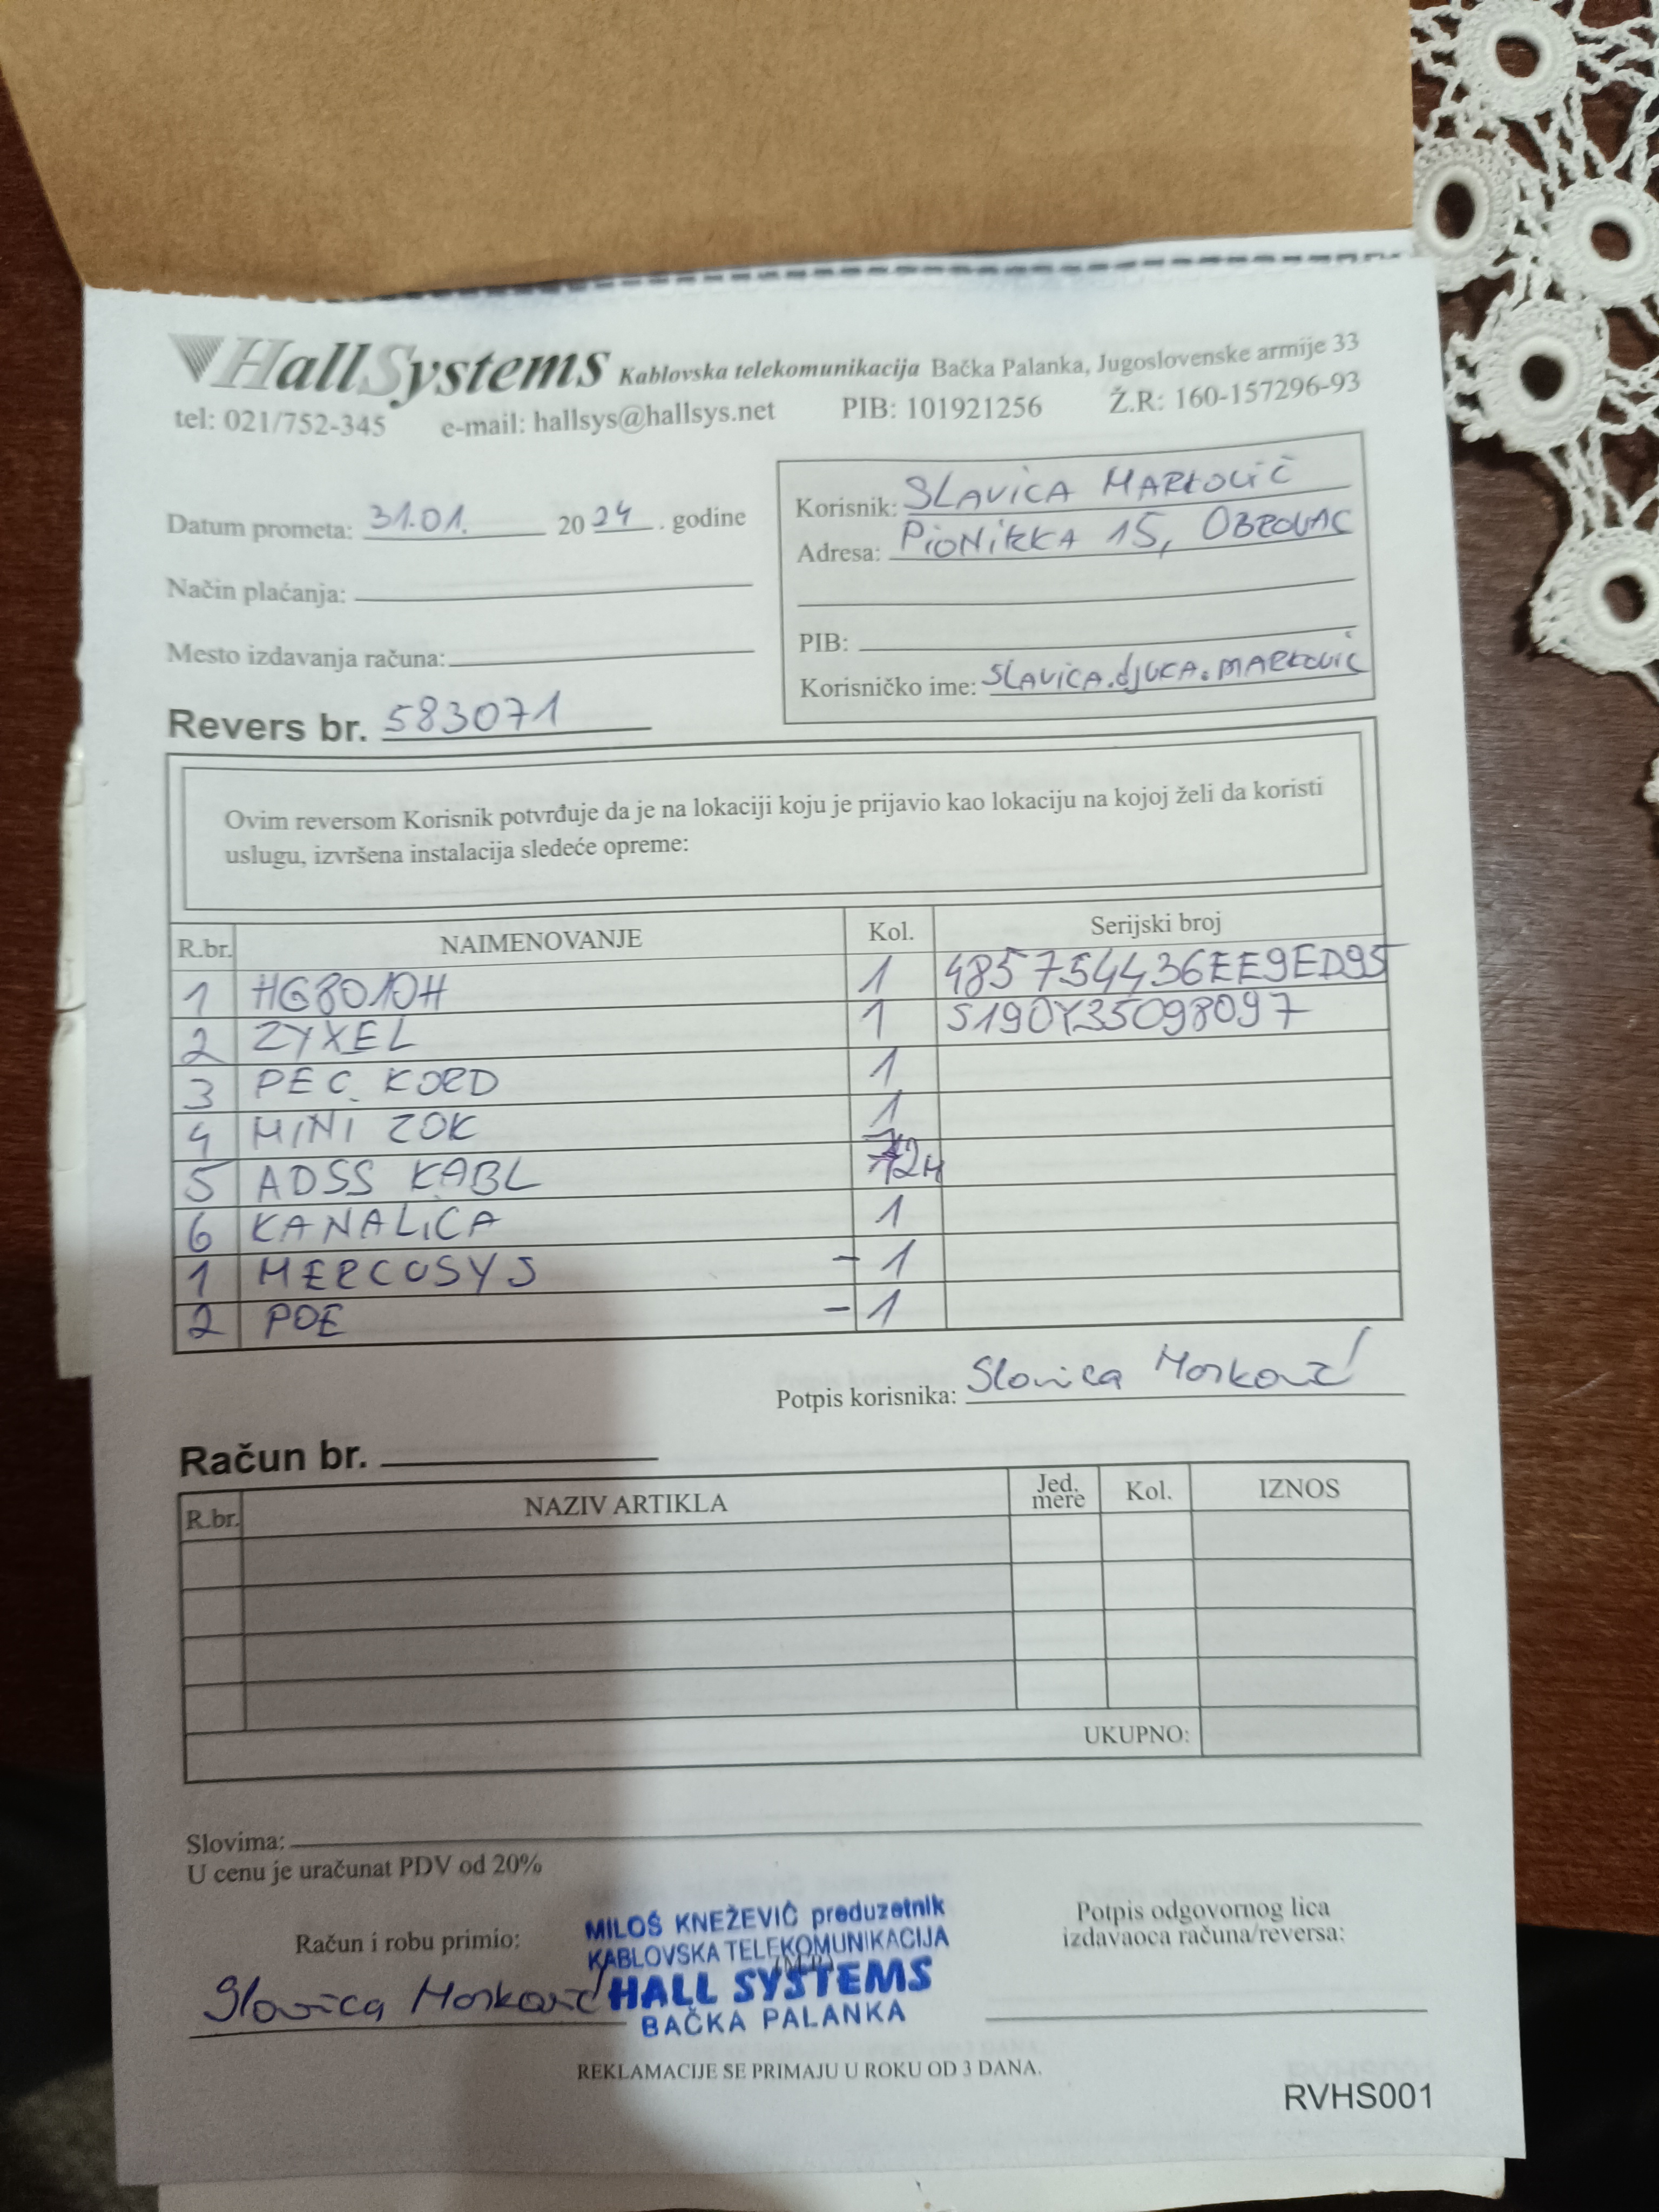 HallSystems Kablovska telekomunikacija Bačka Palanka, Jugoslovenske armije 33
tel: 021/752-345 e-mail: hallsys@hallsys.net PIB: 101921256 Ž.R: 160-157296-93
Datum prometa: 31.01. 2024. godine
Način plaćanja:
Mesto izdavanja računa:
Revers br. 583071
Korisnik: SLAVICA MARKOVIĆ
Adresa: PIONIRKA 15, OBROVAC
PIB:
Korisničko ime: SLAVICA.djUKA.MARKOVIC
Ovim reversom Korisnik potvrđuje da je na lokaciji koju je prijavio kao lokaciju na kojoj želi da koristi
uslugu, izvršena instalacija sledeće opreme:
R.br. NAIMENOVANJE Kol. Serijski broj
1 HG8010H 1 485754436EE9ED95
2 ZYXEL 1 S190Y35098097
3 PEC. KORD 1
4 MINI ZOK 1
5 ADSS KABL 72M
6 KANALICA 1
1 MERCUSYS - 1
2 POE - 1
Potpis korisnika: Slavica Marković
Račun br.
R.br. NAZIV ARTIKLA Jed. mere Kol. IZNOS
UKUPNO:
Slovima:
U cenu je uračunat PDV od 20%
Račun i robu primio:
Slavica Marković
MILOŠ KNEŽEVIĆ preduzetnik
KABLOVSKA TELEKOMUNIKACIJA
(M.P.)
HALL SYSTEMS
BAČKA PALANKA
Potpis odgovornog lica
izdavaoca računa/reversa:
REKLAMACIJE SE PRIMAJU U ROKU OD 3 DANA.
RVHS001